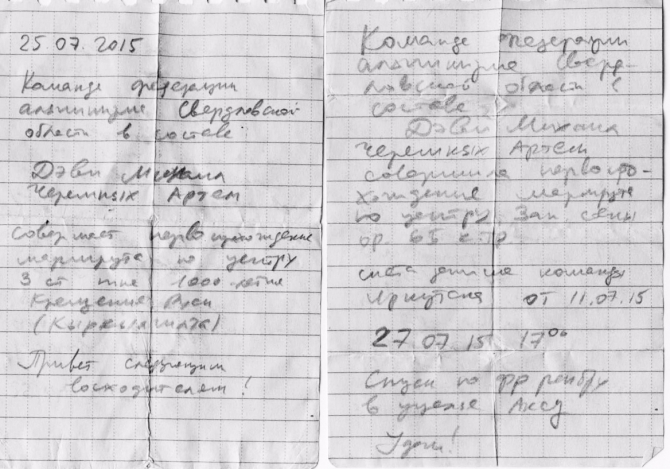 25.07.2015
Команде федерации
альпинизма Свердловской
области в составе
Дэви Михаил
Черемных Артем
совершает первопрохождение
маршрута по центру
З ст 1000-летия
Крещения Руси
(Кыркылшата)
Привет следующим
восходителям!
Команда федерации
альпинизма Сверд-
ловской области в
составе
Дэви Михаил
Черемных Артем
совершила первопро-
хождение маршрута
по центру Зап стены
ор 6Б к.тр
снята записка команды
Иркутска от 11.07.15
27 07 15 17⁰⁰
Спуск по
в ущелье Аксу
Удачи!